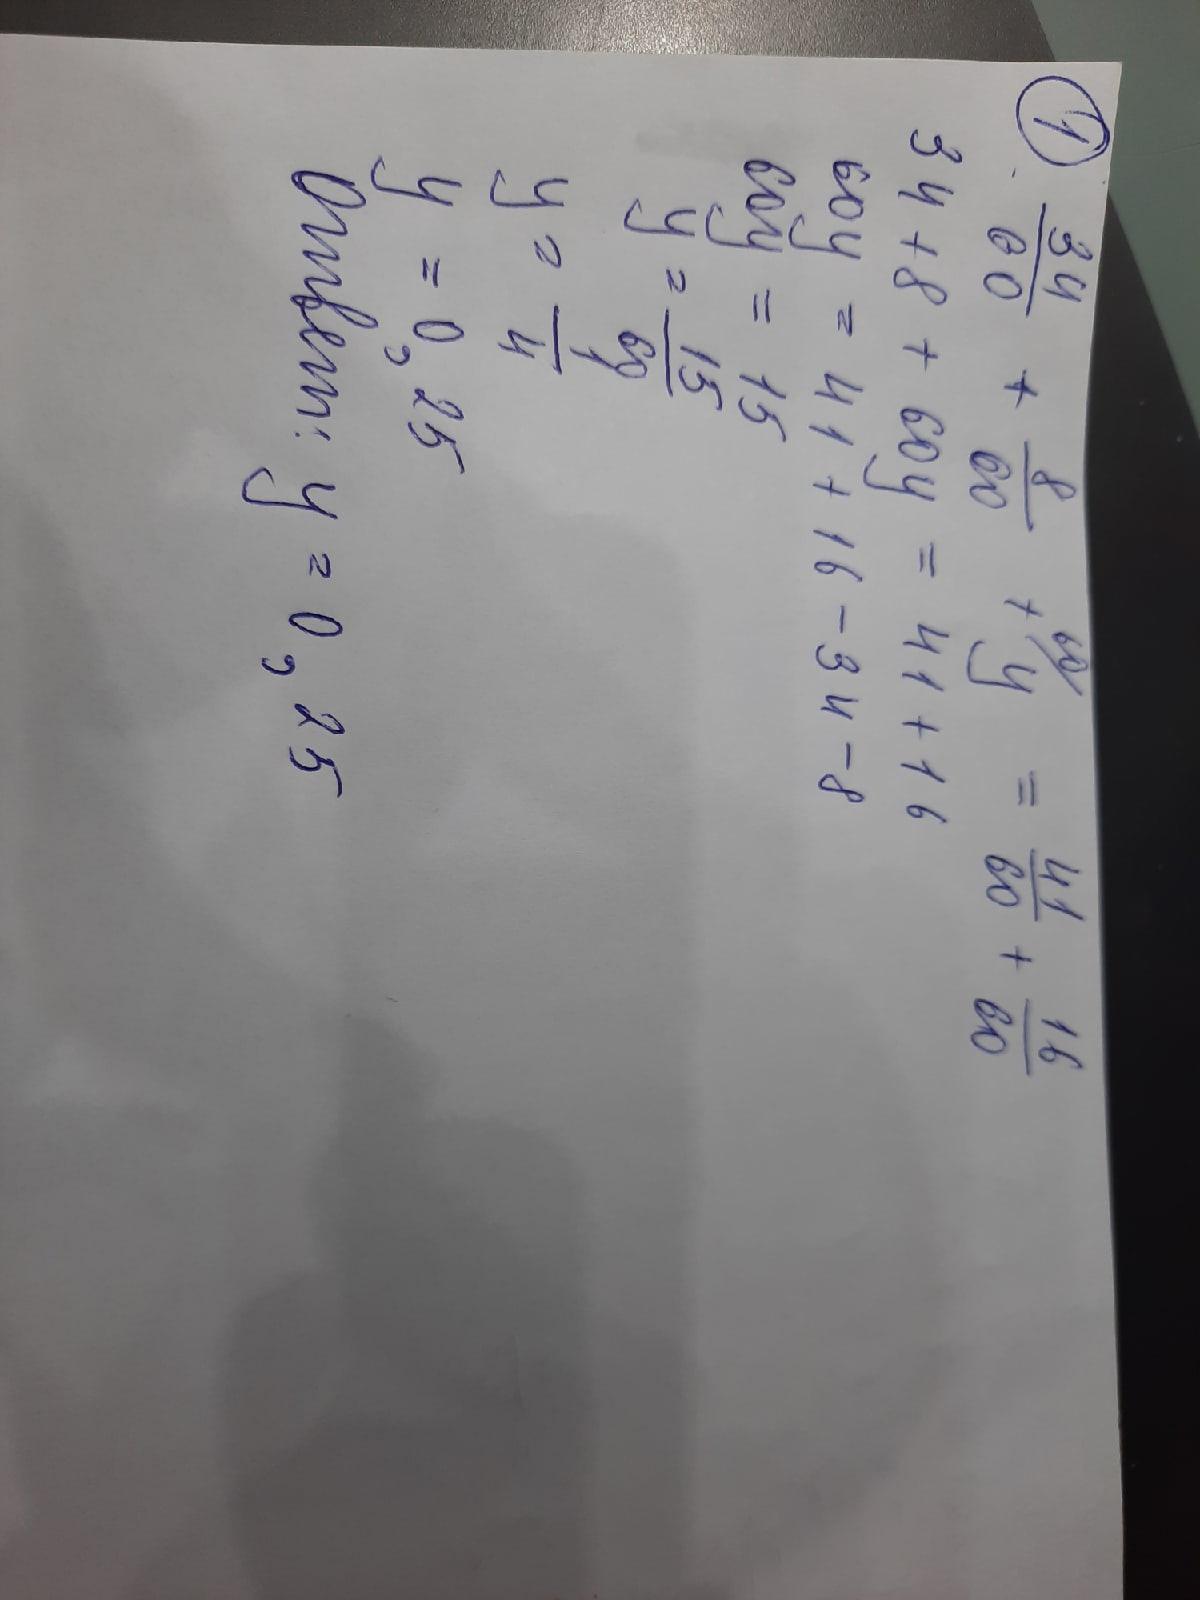 1 34/60 + 8/60 + y 60/ = 41/60 + 16/60
34 + 8 + 60y = 41 + 16
60y = 41 + 16 - 34 - 8
60y = 15
y = 15/60
y = 1/4
y = 0,25
Ответ: y = 0,25